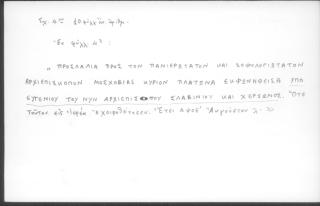 Σχ. 4ον 10 φύλλ. ἄν. ἀριθμ.
Ἐν φύλλ. 4ᵃ :
„ ΠΡΟΣΛΑΛΙΑ ΠΡΟΣ ΤΟΝ ΠΑΝΙΕΡΩΤΑΤΟΝ ΚΑΙ ΣΟΦΟΛΟΓΙΩΤΑΤΟΝ
ΑΡΧΙΕΠΙΣΚΟΠΟΝ ΜΟΣΧΟΒΙΑΣ ΚΥΡΙΟΝ ΠΛΑΤΩΝΑ ΕΚΦΩΝΗΘΕΙΣΑ ΥΠΟ
ΕΥΓΕΝΙΟΥ ΤΟΥ ΝΥΝ ΑΡΧΙΕΠΙΣΚΟΠΟΥ ΣΛΑΒΙΝΙΟΥ ΚΑΙ ΧΕΡΣΩΝΟΣ. Ὅτε
Τοῦτον εἰς ἱερέα ἐχειροθέτησεν. Ἔτει ΑΨΟΕʹ Αὐγούστου λ-